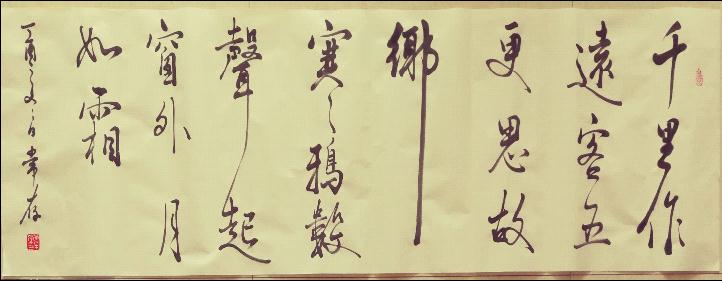 千里作
遠客五
更思故
鄉
寒鴉數
聲起
窗外月
如霜
丁酉常存